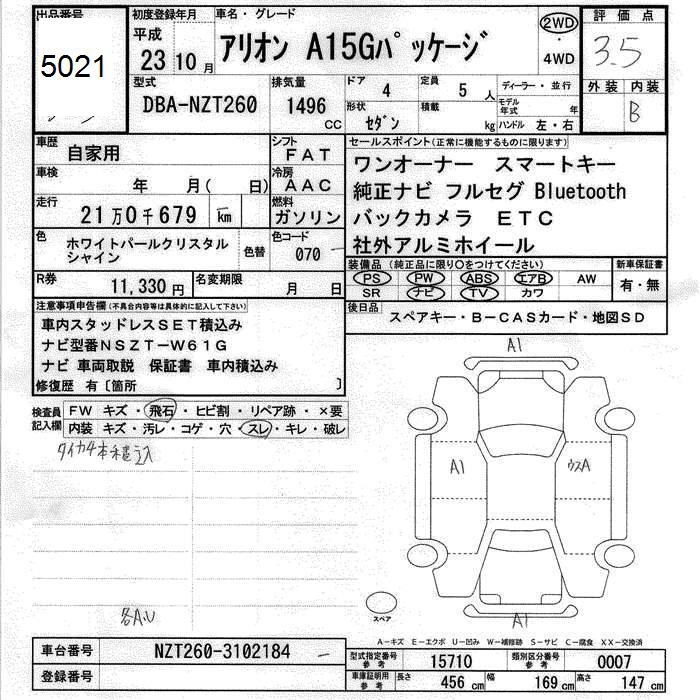 出品番号
5021
初度登録年月
平成
23 10月
車名・グレード
アリオン A15Gパッケージ
2WD
・
4WD
評価点
3.5
外装 内装
B
型式
DBA-NZT260
排気量
1496
CC
ドア
4
定員
5 人
形状
セダン
積載
kg
ディーラー・並行
モデル年式 年
ハンドル 左・右
車歴
自家用
シフト
FAT
車検
年 月( 日)
冷房
AAC
走行
21万0千679 km
燃料
ガソリン
色
ホワイトパールクリスタル
シャイン
色替
色コード
070
R券
11,330円
名変期限
月 日
セールスポイント(正常に機能するものに限ります)
ワンオーナー スマートキー
純正ナビ フルセグ Bluetooth
バックカメラ ETC
社外アルミホイール
装備品(純正品に限り○をつけてください)
PS PW ABS エアB AW
SR ナビ TV カワ
新車保証書
有・無
後日品
スペアキー・B-CASカード・地図SD
注意事項申告欄(不具合内容等は具体的に記入して下さい)
車内スタッドレスSET積込み
ナビ型番NSZT-W61G
ナビ 車両取説 保証書 車内積込み
修復歴 有〔箇所 〕
検査員
記入欄
FW キズ・飛石・ヒビ割・リペア跡・×要
内装 キズ・汚レ・コゲ・穴・スレ・キレ・破レ
タイヤ4本積込
各A.U
A1
A1
ウスA
A1
スペア
A-キズ E-エクボ U-凹み W-補修跡 S-サビ C-腐食 XX-交換済
車台番号
NZT260-3102184
登録番号
型式指定番号
参考
15710
類別区分番号
参考
0007
車庫証明用
参考
長さ
456 cm
幅
169 cm
高さ
147 cm